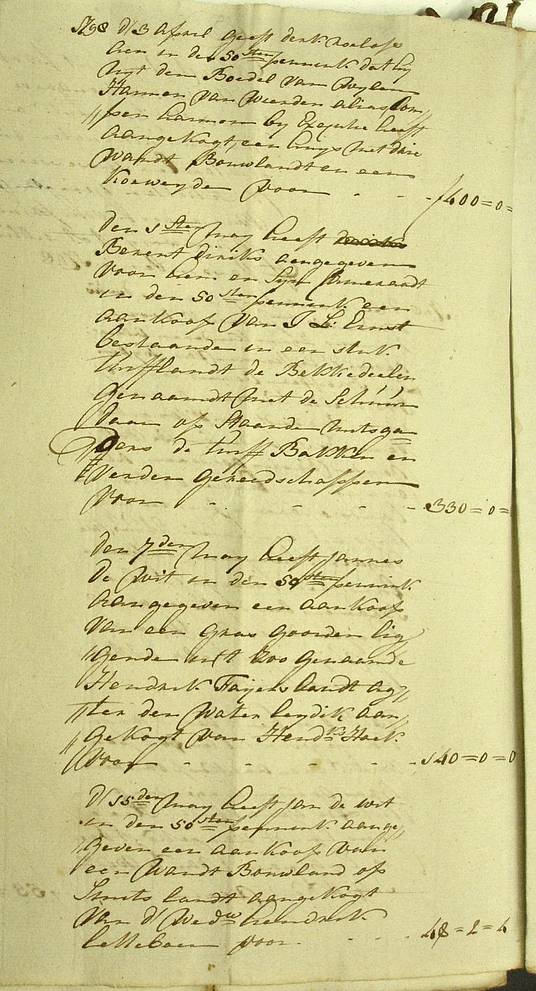 1798 d' 3 April geeft derk roelofs
aen in den 50sten penn: dat hy
uyt den Boedel van wylen
Harmen van Weerden alias
harmen by Executie heeft
aangekogt, een huys met drie
wandt Bouwlandt en een
Koeweyde voor - - f 400=0=
den 1ste May heeft
Berent diriks aangegeven
voor hem en
in den 50sten pennink een
aankoop van J L: Ernst
bestaande in een stuk
turfflandt de Bekkedeelen
genaamdt met de Schuur
daar op Staande mitsga
"ders de turff Bakken en
verdere gereedschappen
voor - - - - 330=0=
den 7den May heeft Jannes
de Wit in den 50sten pennink
aangegeven een aankoop
van een gras goorden lig
"gende uit zoo genaamde
Hendrik landt ag"
"ter den Water leydik aan"
"gekogt van Hendk Hoek
voor - - - - 140=0=0
d' 15den May heeft Jan de Wit
in den 50sten pennink aange"
"geven een aankoop van
een Wandt Bouwland op
Smits landt aangekogt
van d' Wedw hendrik
voor - - 48=2=4